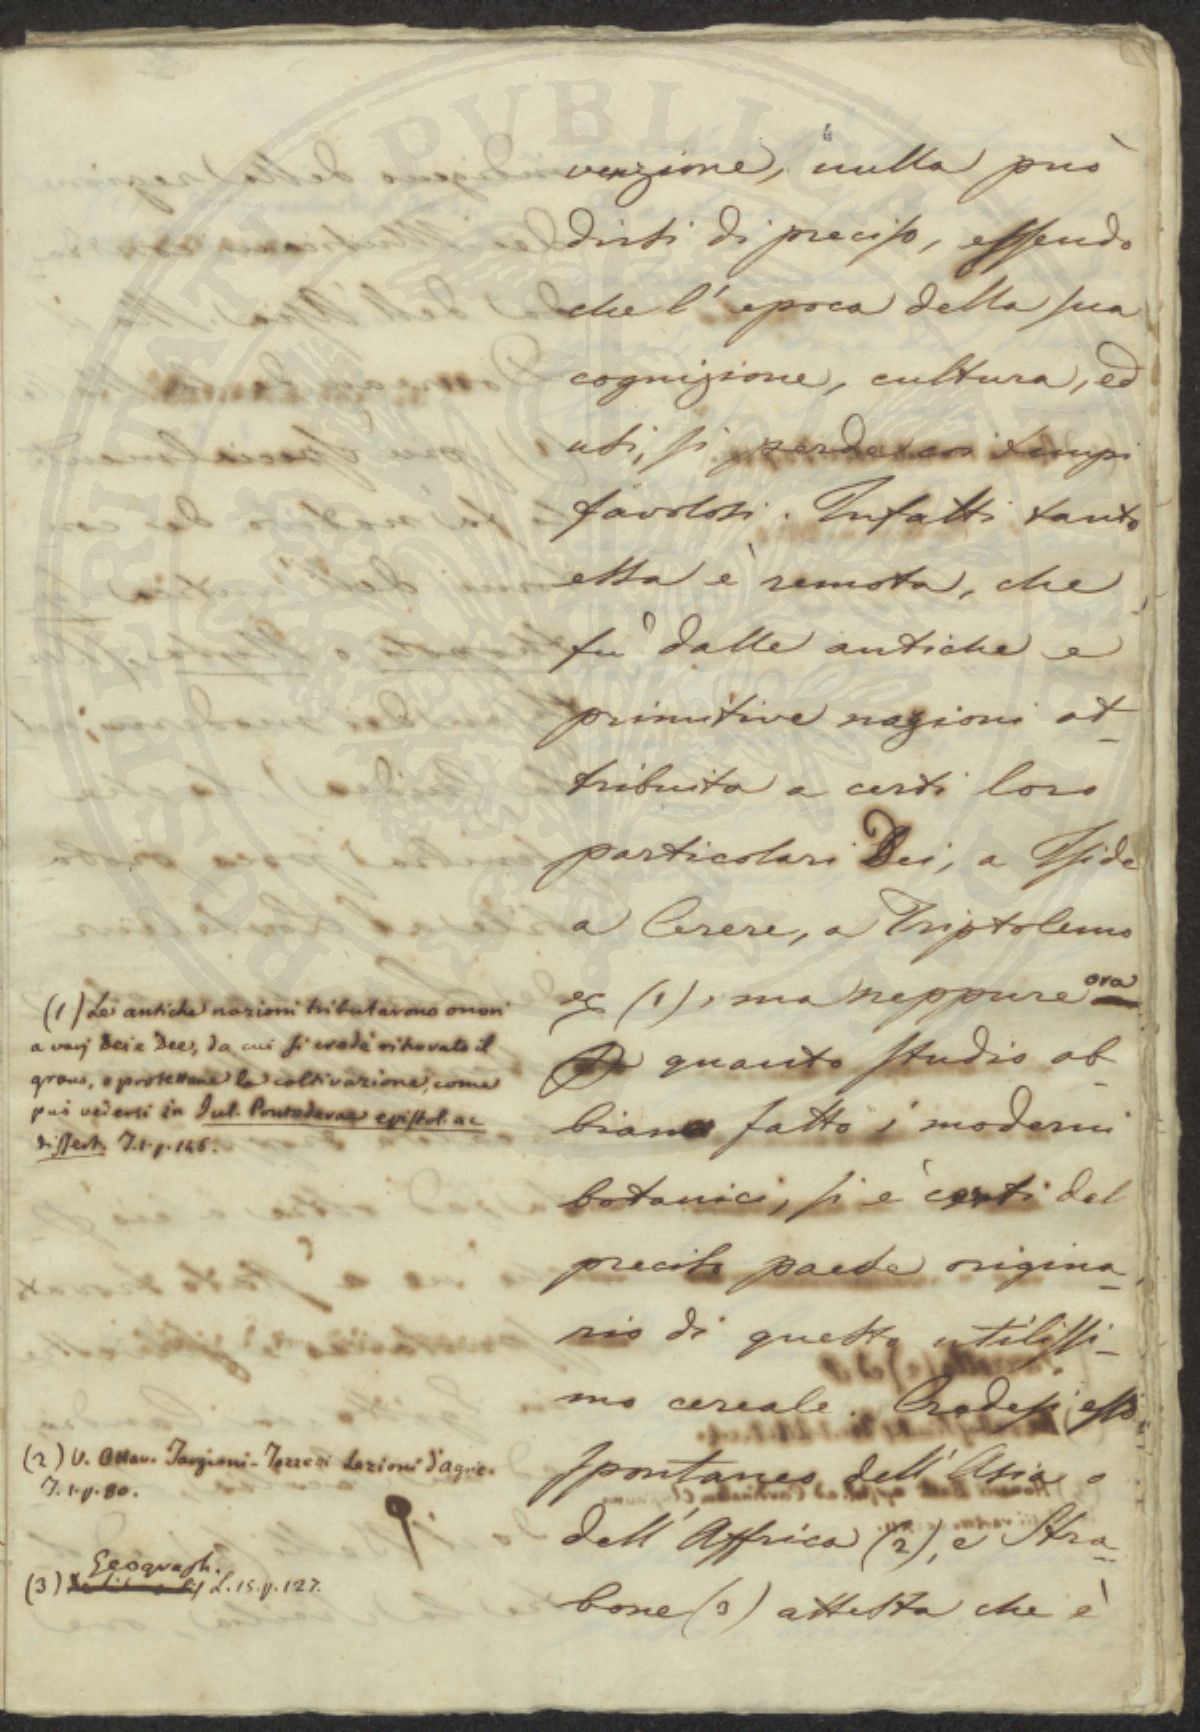 venzione, nulla può
dirsi di preciso, essendo
che l'epoca della sua
cognizione, cultura, ed
usi, si perde coi tempi
favolosi. Infatti tanto
essa è remota, che
fù dalle antiche e
primitive nazioni at-
tribuita a certi loro
particolari Dei, a Iside
a Cerere, a Triptolemo
ec (1), ma neppure ora
quanto studio ab-
biano fatto i moderni
botanici, si è certi del
preciso paese origina-
rio di questo utilissi-
mo cereale. Credesi esso
spontaneo dell'Asia o
dell'Affrica (2), e Stra-
bone (3) attesta che è
(1) Le antiche nazioni tributavono onori
a varj Dei e Dee, da cui si crede ritrovato il
grano, o protettane la coltivazione, come
può vedersi in Jul. Pontederae epistol. ac
dissert. T.1.p.146.
(2) V. Ottav. Targioni-Tozzeti Lezioni d'agric.
T.1.p.80.
(3) Geograph. L.15.p.127.